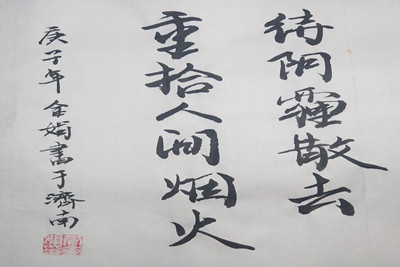 待阴霾散去
重拾人间烟火
庚子年金娟书于濟南